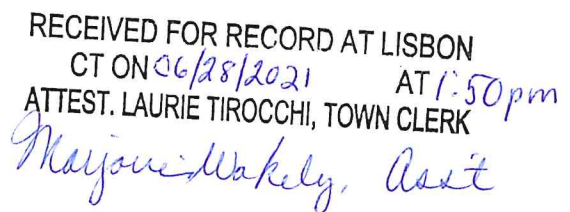 RECEIVED FOR RECORD AT LISBON
CT ON 06/28/2021 AT 1:50pm
ATTEST. LAURIE TIROCCHI, TOWN CLERK
Marjorie Wakely, Ass't